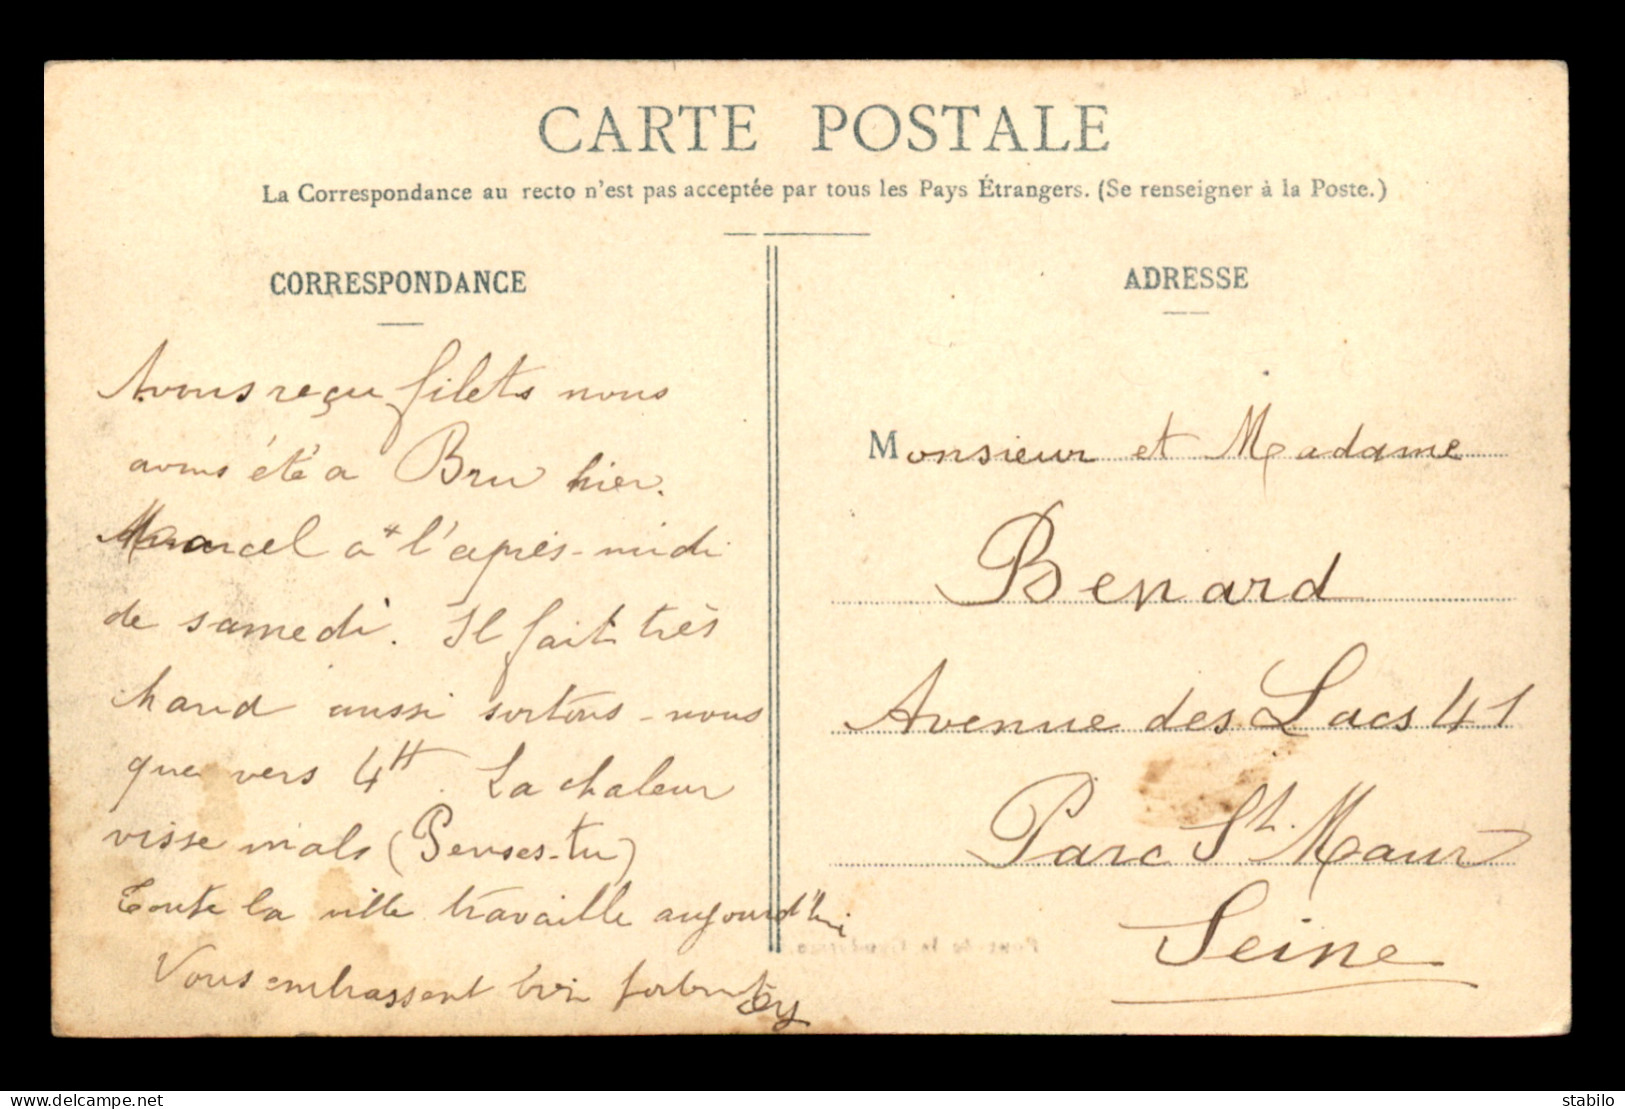 CARTE POSTALE
La Correspondance au recto n'est pas acceptée par tous les Pays Étrangers. (Se renseigner à la Poste.)
CORRESPONDANCE
Avons reçu filets nous
avons été a Bru hier.
Marcel a + l'après-midi
de samedi. Il fait très
chaud aussi sortons-nous
que vers 4H. La chaleur
visse mals (Penses-tu)
Toute la ville travaille aujourd'hui
Vous embrassent bien
ADRESSE
Monsieur et Madame
Benard
Avenue des Lacs 41
Parc St. Maur
Seine
delcampe.net
stabilo